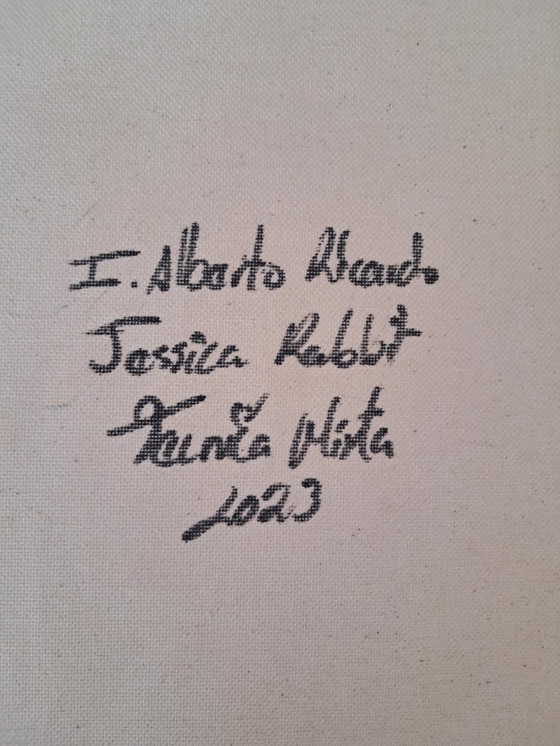 I. Alberto Ricardo
Jessica Rabbit
Tecnica Mixta
2023